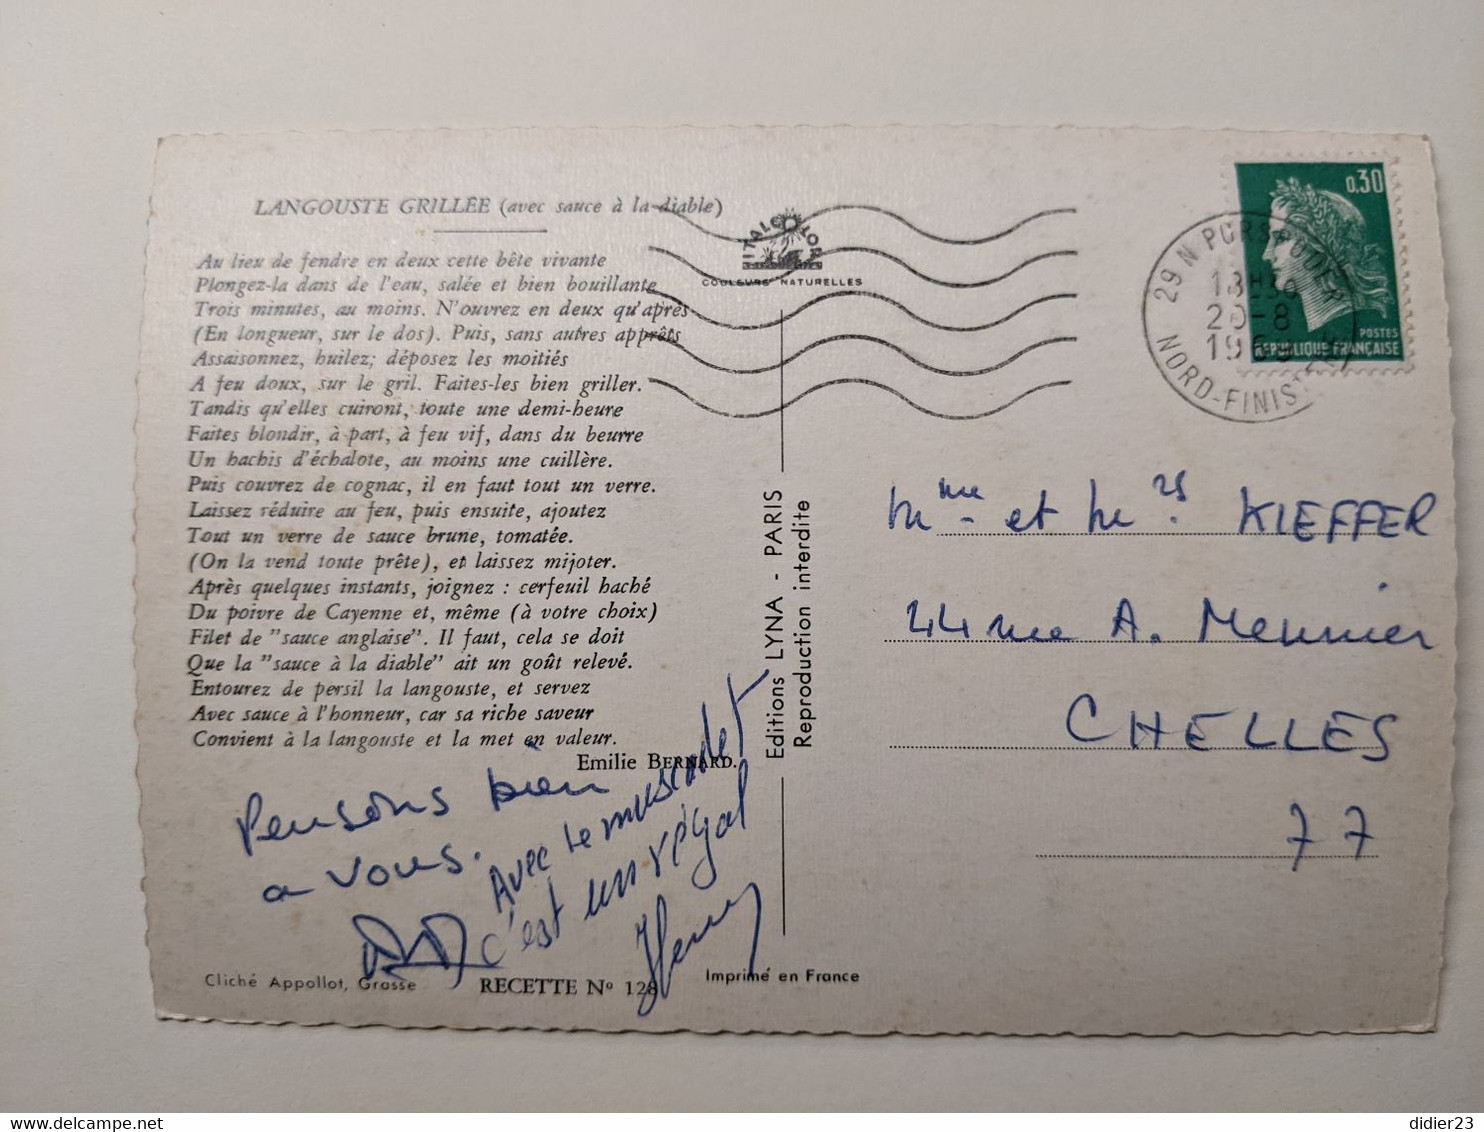 LANGOUSTE GRILLÉE (avec sauce à la diable)
Au lieu de fendre en deux cette bête vivante
Plongez-la dans de l'eau, salée et bien bouillante
Trois minutes, au moins. N'ouvrez en deux qu'après
(En longueur, sur le dos). Puis, sans autres apprêts
Assaisonnez, huilez; déposez les moitiés
A feu doux, sur le gril. Faites-les bien griller.
Tandis qu'elles cuiront, toute une demi-heure
Faites blondir, à part, à feu vif, dans du beurre
Un hachis d'échalote, au moins une cuillère.
Puis couvrez de cognac, il en faut tout un verre.
Laissez réduire au feu, puis ensuite, ajoutez
Tout un verre de sauce brune, tomatée.
(On la vend toute prête), et laissez mijoter.
Après quelques instants, joignez : cerfeuil haché
Du poivre de Cayenne et, même (à votre choix)
Filet de "sauce anglaise". Il faut, cela se doit
Que la "sauce à la diable" ait un goût relevé.
Entourez de persil la langouste, et servez
Avec sauce à l'honneur, car sa riche saveur
Convient à la langouste et la met en valeur.
Emilie BERNARD.
Pensons bien
a vous.
Avec le muscadet
c'est un régal
Henry
Cliché Appollot, Grasse
RECETTE Nº 128
Imprimé en France
ITALCOLOR
COULEURS NATURELLES
Editions LYNA - PARIS
Reproduction interdite
0,30
POSTES
REPUBLIQUE FRANÇAISE
29 N PORSPODER
18H30
20-8
1969
NORD-FINISTERE
Mme et Mrs KIEFFER
44 rue A. Meunier
CHELLES
77
didier23